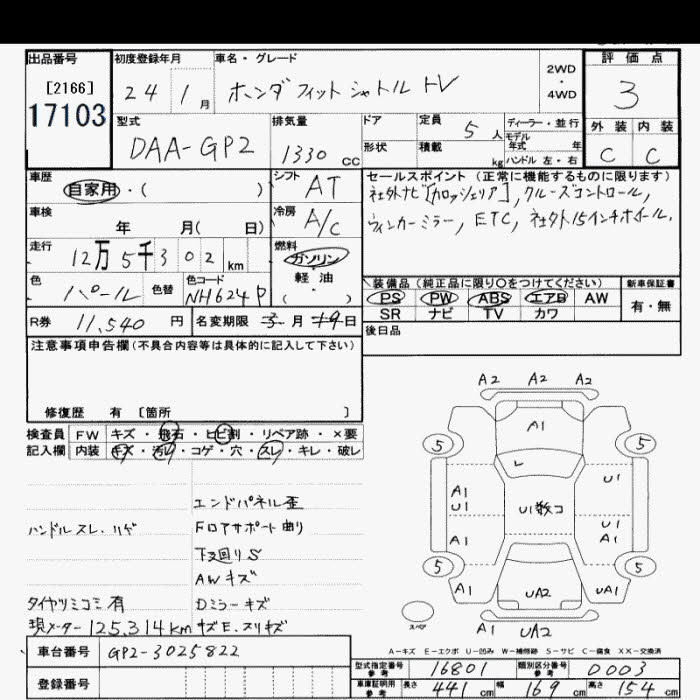 出品番号
[2166]
17103
初度登録年月
24 1 月
車名・グレード
ホンダ フィット シャトル HV
2WD
・
4WD
評価点
3
外装 内装
C C
型式
DAA-GP2
排気量
1330 cc
ドア
形状
定員 5 人
積載 kg
ディーラー・並行
モデル年式 年
ハンドル 左・右
車歴
自家用・( )
シフト AT
冷房 A/C
車検
年 月( 日)
走行
12万5千302 km
燃料
ガソリン
・
軽油
( )
色 パール 色替
色コード NH624P
R券 11,540 円
名変期限 月 日
セールスポイント(正常に機能するものに限ります)
社外ナビ[カロッツェリア], クルーズコントロール,
ウィンカーミラー, ETC, 社外15インチホイール.
装備品(純正品に限り○をつけてください)
PS PW ABS エアB AW
SR ナビ TV カワ
新車保証書
有・無
後日品
注意事項申告欄(不具合内容等は具体的に記入して下さい)
修復歴 有 〔箇所 〕
検査員記入欄
FW キズ・飛石・ヒビ割・リペア跡・×要
内装 キズ・汚れ・コゲ・穴・スレ・キレ・破レ
エンドパネル歪
ハンドルスレ、ハゲ
Fロアサポート曲り
下廻りS
AWキズ
タイヤツミコミ有
Dミラーキズ
現メーター125,314km
キズE、スリキズ
A2 A2 A2
A1
5 5
A1
U1
U1
U1数コ
A1
U1
A1
5 5
A1
UA2
UA1
A1
UA2
スペア
A-キズ E-エクボ U-凹み W-補修跡 S-サビ C-腐食 XX-交換済
車台番号 GP2-3025822
登録番号
型式指定番号 参考 16801
類別区分番号 参考 0003
車庫証明用 参考 長さ 441 cm 幅 169 cm 高さ 154 cm